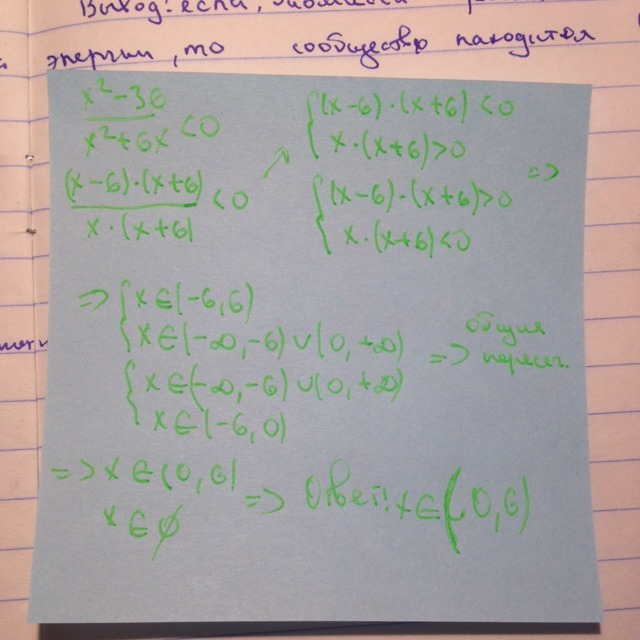 Вывод: если,
энергии, то сообщество находится
x²-36
x²+6x <0
(x-6)·(x+6)
x·(x+6) <0
{(x-6)·(x+6)<0
x·(x+6)>0
{(x-6)·(x+6)>0
x·(x+6)<0
=>
=> {x∈(-6,6)
x∈(-∞,-6)∪(0,+∞)
{x∈(-∞,-6)∪(0,+∞)
x∈(-6,0)
=> общия
пересеч.
=> x∈(0,6)
x∈∅
=> Ответ: x∈(0,6)